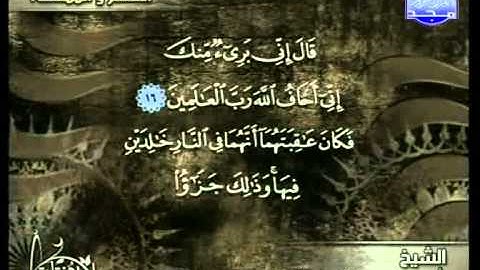 مجد
قَالَ إِنِّى بَرِىٓءٌ مِّنكَ
إِنِّىٓ أَخَافُ ٱللَّهَ رَبَّ ٱلْعَـٰلَمِينَ ١٦
فَكَانَ عَـٰقِبَتَهُمَآ أَنَّهُمَا فِى ٱلنَّارِ خَـٰلِدَيْنِ
فِيهَا ۚ وَذَٰلِكَ جَزَٰٓؤُا۟
الشيخ